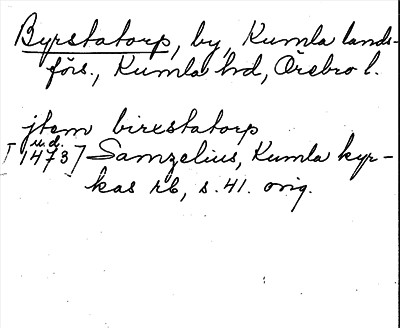 Byrstatorp, by, Kumla lands-
förs., Kumla hd, Örebro l.
jtem birxstatorp
u.d.
[1473] Samzelius, Kumla kyr-
kas rb, s. 41. orig.